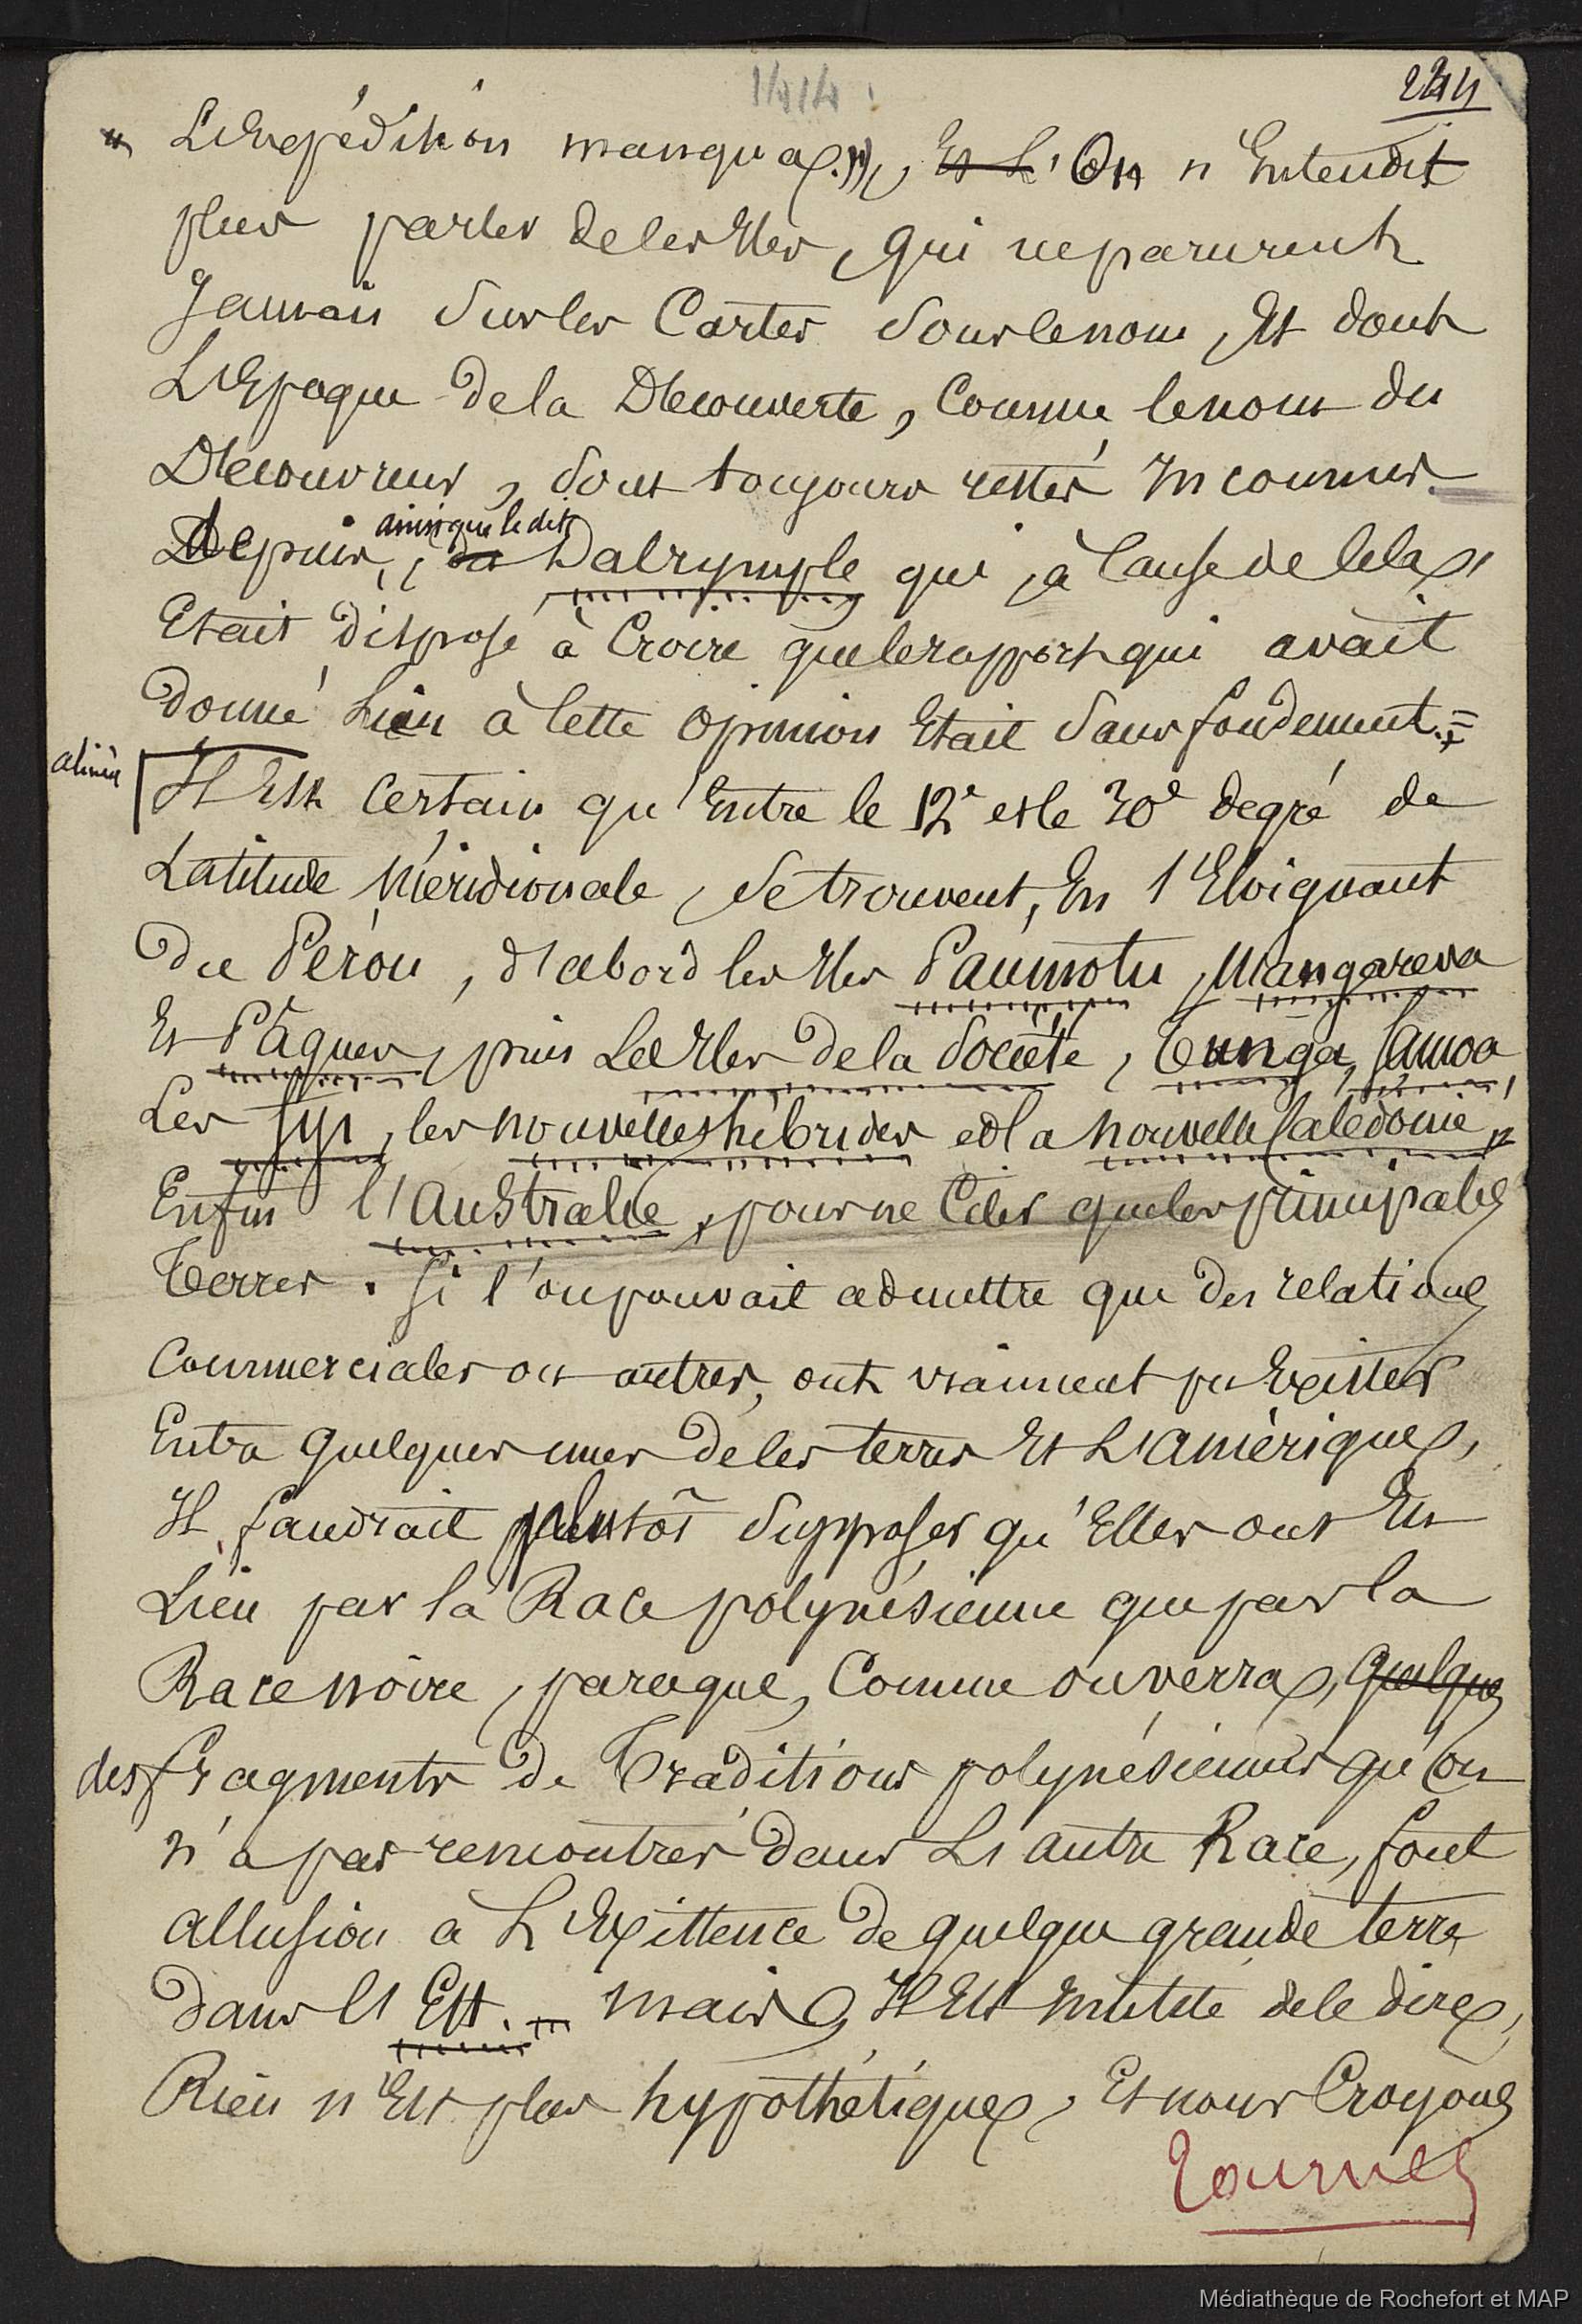 1414
244
" L'Expédition manqua.", Et L'On n'Entendit
plus parler de ces Iles, qui ne parurent
Jamais sur les Cartes sous ce nom, Et dont
L'Epoque de la Découverte, Comme le nom du
Découvreur, sont toujours restés Inconnus
Depuis, ainsi que le dit Dalrymple qui, à Cause de Cela,
Etait disposé à Croire que le rapport qui avait
donné Lieu à Cette Opinion Etait sans fondement. =
alinéa Il Est Certain qu'Entre le 12e et le 30e degré de
Latitude Méridionale, se trouvent, En s'Eloignant
du Pérou, d'abord les Iles Paumotu, Mangareva
Et Pâques, puis Les Iles de la Société, Tunga, Samoa,
Les Fiji, les nouvelles hébrides et la nouvelle Calédonie,
Enfin l'Australie, pour ne Citer que les principales
Terres. Si l'on pouvait admettre que des relations
Commerciales ou autres, ont vraiment pu Exister
Entre quelques unes de ces terres Et L'amérique,
Il faudrait plutôt supposer qu'Elles ont Eu
Lieu par la Race polynésienne que par la
Race noire, parceque, Comme on verra, quelques
des fragments de Traditions polynésiennes qu'on
n'a pas rencontrés dans L'autre Race, font
allusion à L'Existence de quelque grande terre
dans l'Est. _ mais, Il Est Inutile de le dire,
Rien n'Est plus hypothétique, Et nous Croyons
Tournez
Médiathèque de Rochefort et MAP